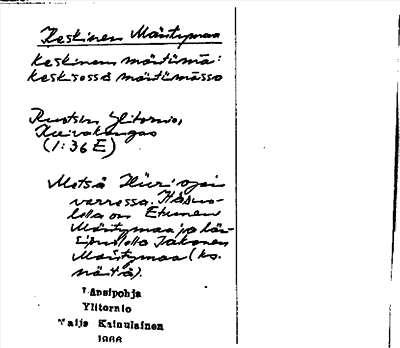 Keskinen Mäntymaa
keskinem mäntümā:
keskisessä mäntümāssa
Ruotsin Ylitornio,
Kuivakangas
(1:36 E)
Metsä Hüri ojan
varressa. Itäpuo-
lella on Etumen
Mäntymaa ja län-
sipuolella Takanen
Mäntymaa (ks.
näitä).
Länsipohja
Ylitornio
Taija Kainulainen
1966